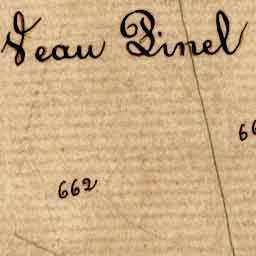 Veau Pinel
66
662